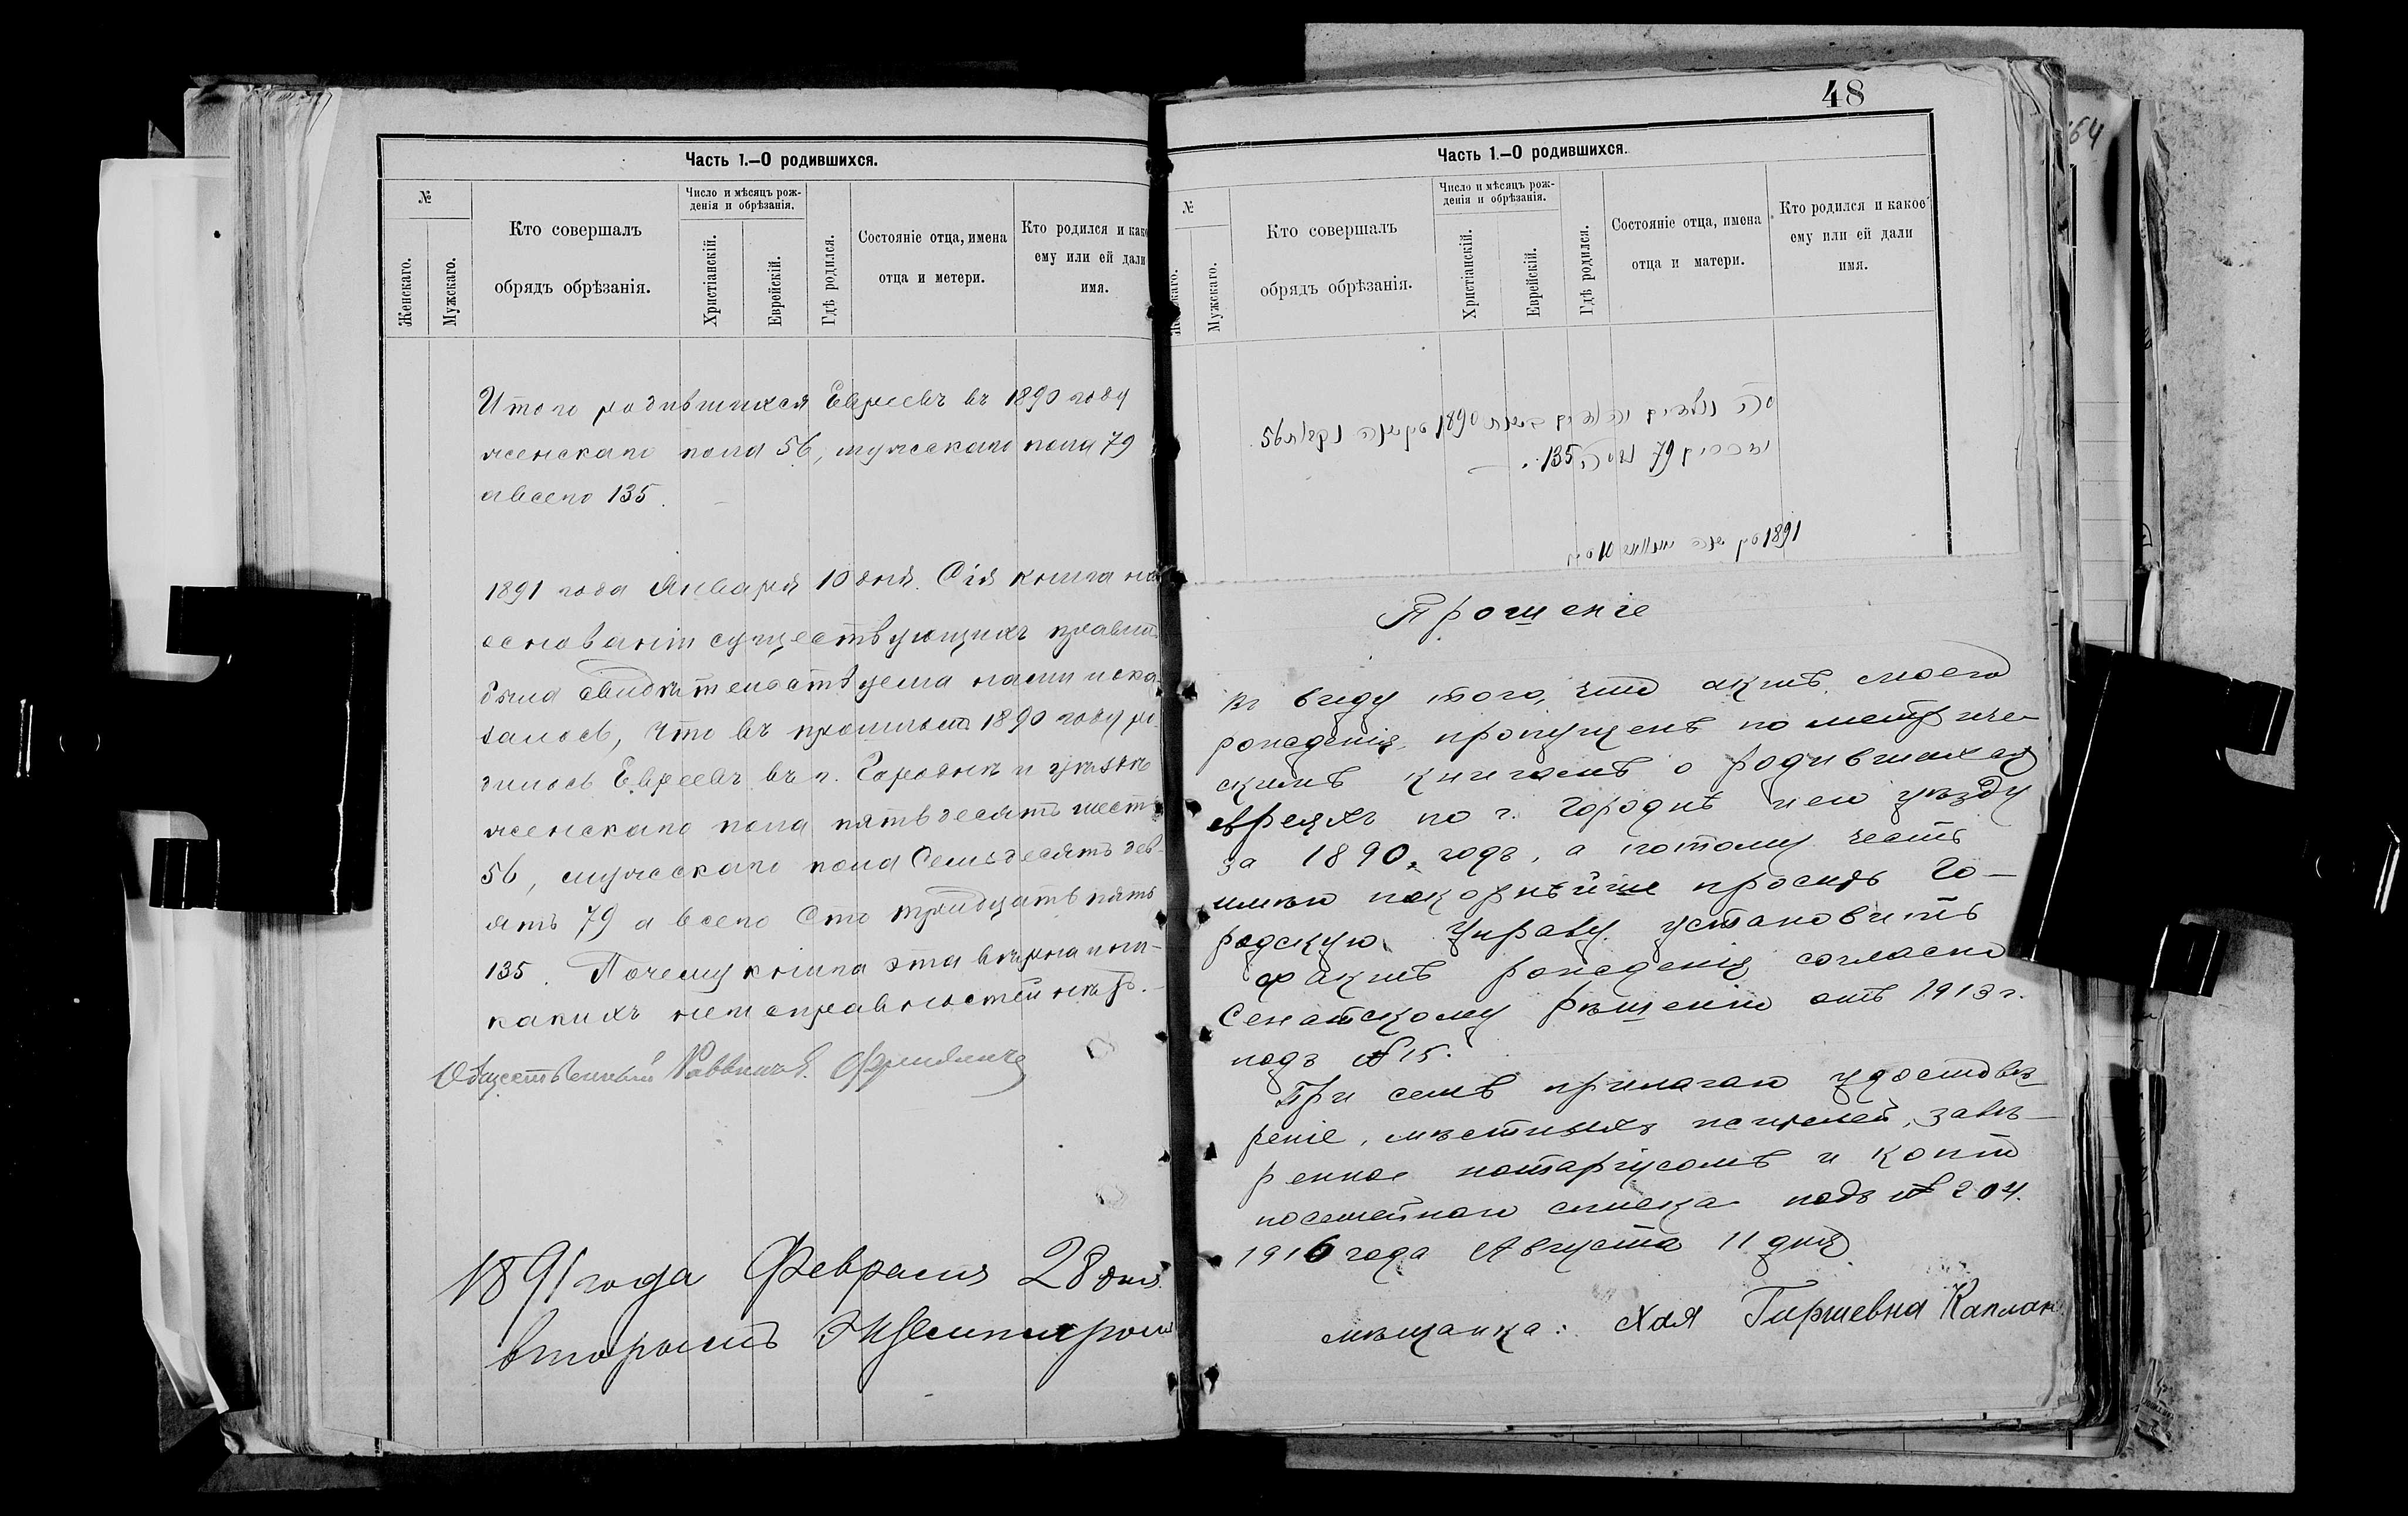 Часть 1.—О родившихся.
№
Женскаго.
Мужскаго.
Кто совершалъ
обрядъ обрѣзанія.
Число и мѣсяцъ рож-
денія и обрѣзанія.
Христіанскій.
Еврейскій.
Гдѣ родился.
Состояніе отца, имена
отца и метери.
Кто родился и како
ему или ей дали
имя.
Итого родившихся Евреевъ въ 1890 году
женскаго пола 56, мужскаго пола 79
а всего 135.
1891 года Января 10 дня. Сія книга на
основаніи существующихъ правил
была свидѣтельствуема нами и ока-
залось, что въ прошломъ 1890 году ро
дилось Евреевъ въ г. Городнѣ и уѣздѣ
женскаго пола пятьдесятъ шесть
56, мужскаго пола Семьдесятъ дев-
ять 79 а всего Сто тридцать пять
135. Почему книга эта вѣрна и ни-
какихъ неисправностей нѣтъ.
Общественный Раввинъ
1891 года Февраля 28 дня
вторымъ экземпляромъ
48
Часть 1.—О родившихся.
№
Мужскаго.
Кто совершалъ
обрядъ обрѣзанія.
Число и мѣсяцъ рож-
денія и обрѣзанія.
Христіанскій.
Еврейскій.
Гдѣ родился.
Состояніе отца, имена
отца и матери.
Кто родился и какое
ему или ей дали
имя.
1890 56
79 135
1891 10
Прошеніе
Въ виду того, что актъ моего
рожденія пропущенъ по метриче-
скимъ книгамъ о родившихся
евреяхъ по г. Городнѣ и его уѣзду
за 1890 годъ, а потому честь
имѣю покорнѣйше просить Го-
родскую Управу установить
фактъ рожденія согласно
Сенатскому рѣшенію отъ 1913 г.
подъ № 15.
При семъ прилагаю удостовѣ-
реніе, мѣстныхъ жителей, завѣ-
ренное нотаріусомъ и копію
посемейнаго списка подъ № 204.
1916 года Августа 11 дня
мѣщанка: Хая Гиршевна Каплан
64